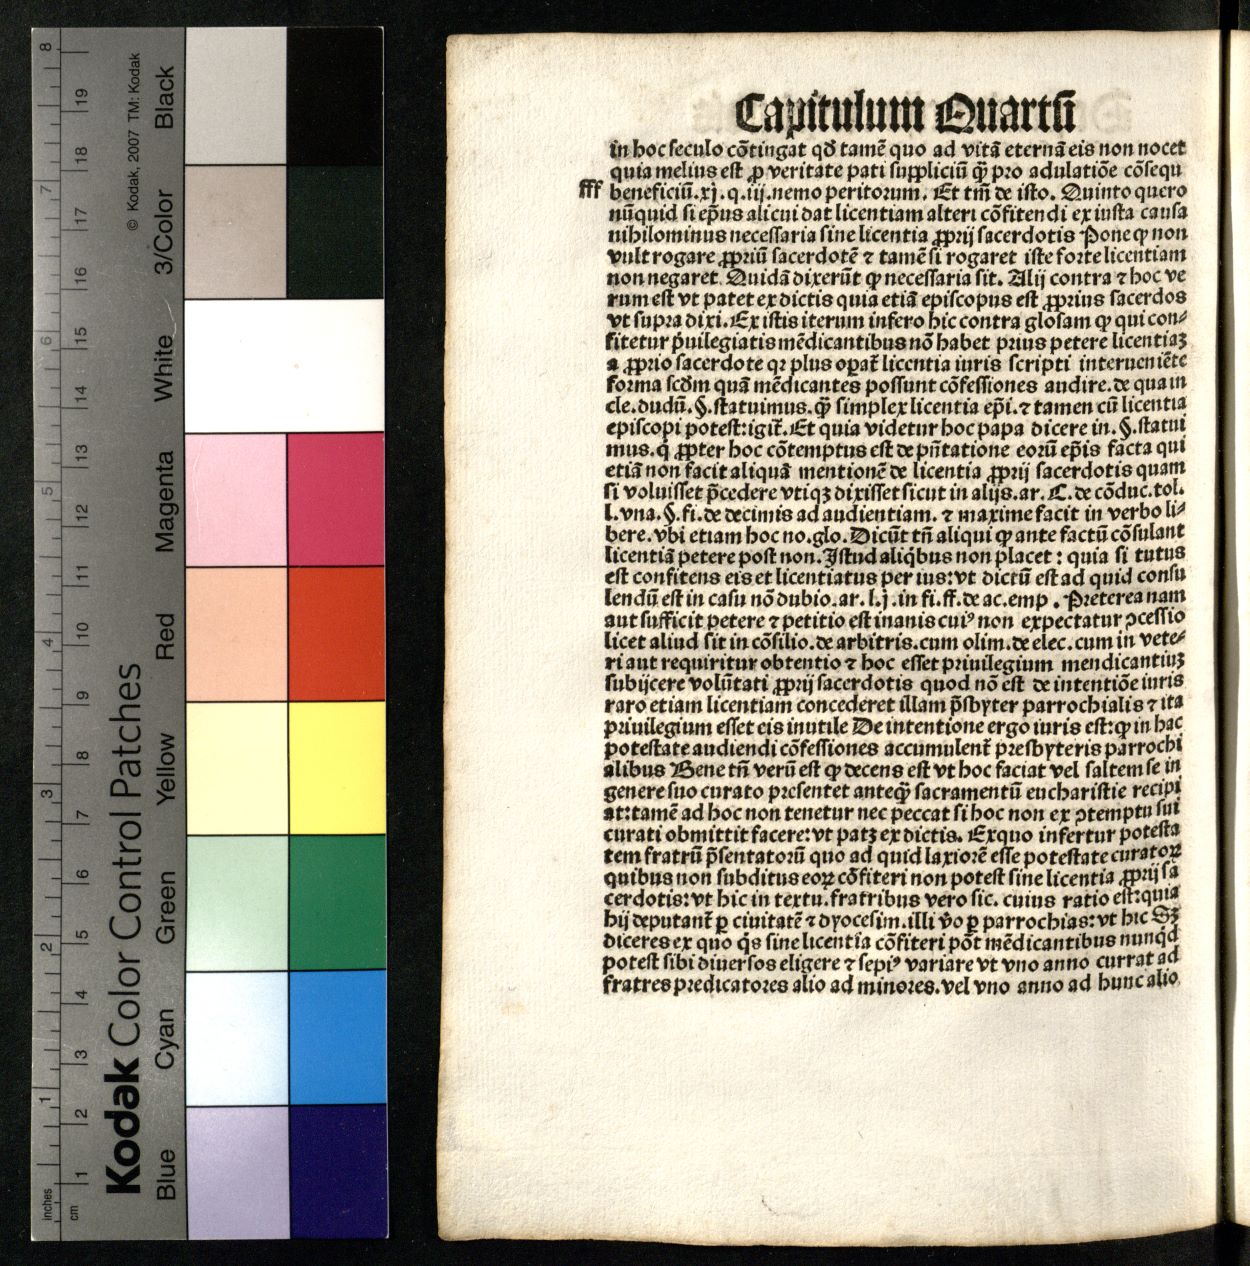 Capitulum Quartū
in hoc seculo cōtingat qđ tamē quo ad vitā eternā eis non nocet
quia melius est ꝓ veritate pati suppliciū q̄ꝫ pro adulatiōe cōsequ
fff beneficiū.xj.q.iij.nemo peritorum. Et tm̄ de isto. Quinto quero
nūquid si ep̄us alicui dat licentiam alteri cōfitendi ex iusta causa
nihilominus necessaria sine licentia ꝓprij sacerdotis Pone ꝙ non
vult rogare ꝓpriū sacerdotē ⁊ tamē si rogaret iste forte licentiam
non negaret. Quidā dixerūt ꝙ necessaria sit. Alij contra ⁊ hoc ve
rum est vt patet ex dictis quia etiā episcopus est ꝓprius sacerdos
vt supra dixi. Ex istis iterum infero hic contra glosam ꝙ qui con⸗
fitetur p̄uilegiatis mēdicantibus nō habet prius petere licentiaꝫ
a ꝓprio sacerdote qꝛ plus oꝑat᷑ licentia iuris scripti interueniēte
forma scd̄m quā mēdicantes possunt cōfessiones audire.de qua in
cle.dudū.§.statuimus.q̄ꝫ simplex licentia ep̄i.⁊ tamen cū licentia
episcopi potest:igit᷑. Et quia videtur hoc papa dicere in.§.statui
mus.q̇ ꝓpter hoc cōtemptus est de pn̄tatione eorū ep̄is facta qui
etiā non facit aliquā mentionē de licentia ꝓprij sacerdotis quam
si voluisset p̄cedere vtiqꝫ dixisset sicut in alijs.ar.C.de cōduc.tol.
l.vna.§.fi.de decimis ad audientiam. ⁊ maxime facit in verbo li⸗
bere.vbi etiam hoc no.glo. Dicūt tn̄ aliqui ꝙ ante factū cōsulant
licentiā petere post non. Istud aliq̇bus non placet : quia si tutus
est confitens eis et licentiatus per ius:vt dictū est ad quid consu
lendū est in casu nō dubio.ar.l.j.in fi.ff.de ac.emp. Preterea nam
aut sufficit petere ⁊ petitio est inanis cuiꝰ non expectatur ꝯcessio
licet aliud sit in cōsilio.de arbitris.cum olim.de elec.cum in vete⸗
ri aut requiritur obtentio ⁊ hoc esset priuilegium mendicantiuꝫ
subijcere volūtati ꝓprij sacerdotis quod nō est de intentiōe iuris
raro etiam licentiam concederet illam p̄sbyter parrochialis ⁊ ita
priuilegium esset eis inutile De intentione ergo iuris est:ꝙ in hac
potestate audiendi cōfessiones accumulent᷑ presbyteris parrochi
alibus Bene tn̄ verū est ꝙ decens est vt hoc faciat vel saltem se in
genere suo curato presentet anteq̄ꝫ sacramentū eucharistie recipi
at:tamē ad hoc non tenetur nec peccat si hoc non ex ꝯtemptu sui
curati obmittit facere:vt patꝫ ex dictis. Exquo infertur potesta
tem fratrū p̄sentatorū quo ad quid laxiorē esse potestate curatoꝝ
quibus non subditus eoꝝ cōfiteri non potest sine licentia ꝓprij sa
cerdotis:vt hic in textu.fratribus vero sic. cuius ratio est:quia
hij deputant᷑ ꝑ ciuitatē ⁊ dyocesim.illi v̊o ꝑ parrochias:vt hic Sꝫ
diceres ex quo q̇s sine licentia cōfiteri pōt mēdicantibus nunq̇d
potest sibi diuersos eligere ⁊ sepiꝰ variare vt vno anno currat ad
fratres predicatores alio ad minores.vel vno anno ad hunc alio
Kodak Color Control Patches
© Kodak, 2007 TM: Kodak
Blue Cyan Green Yellow Red Magenta White 3/Color Black
inches 1 2 3 4 5 6 7 8
cm 1 2 3 4 5 6 7 8 9 10 11 12 13 14 15 16 17 18 19